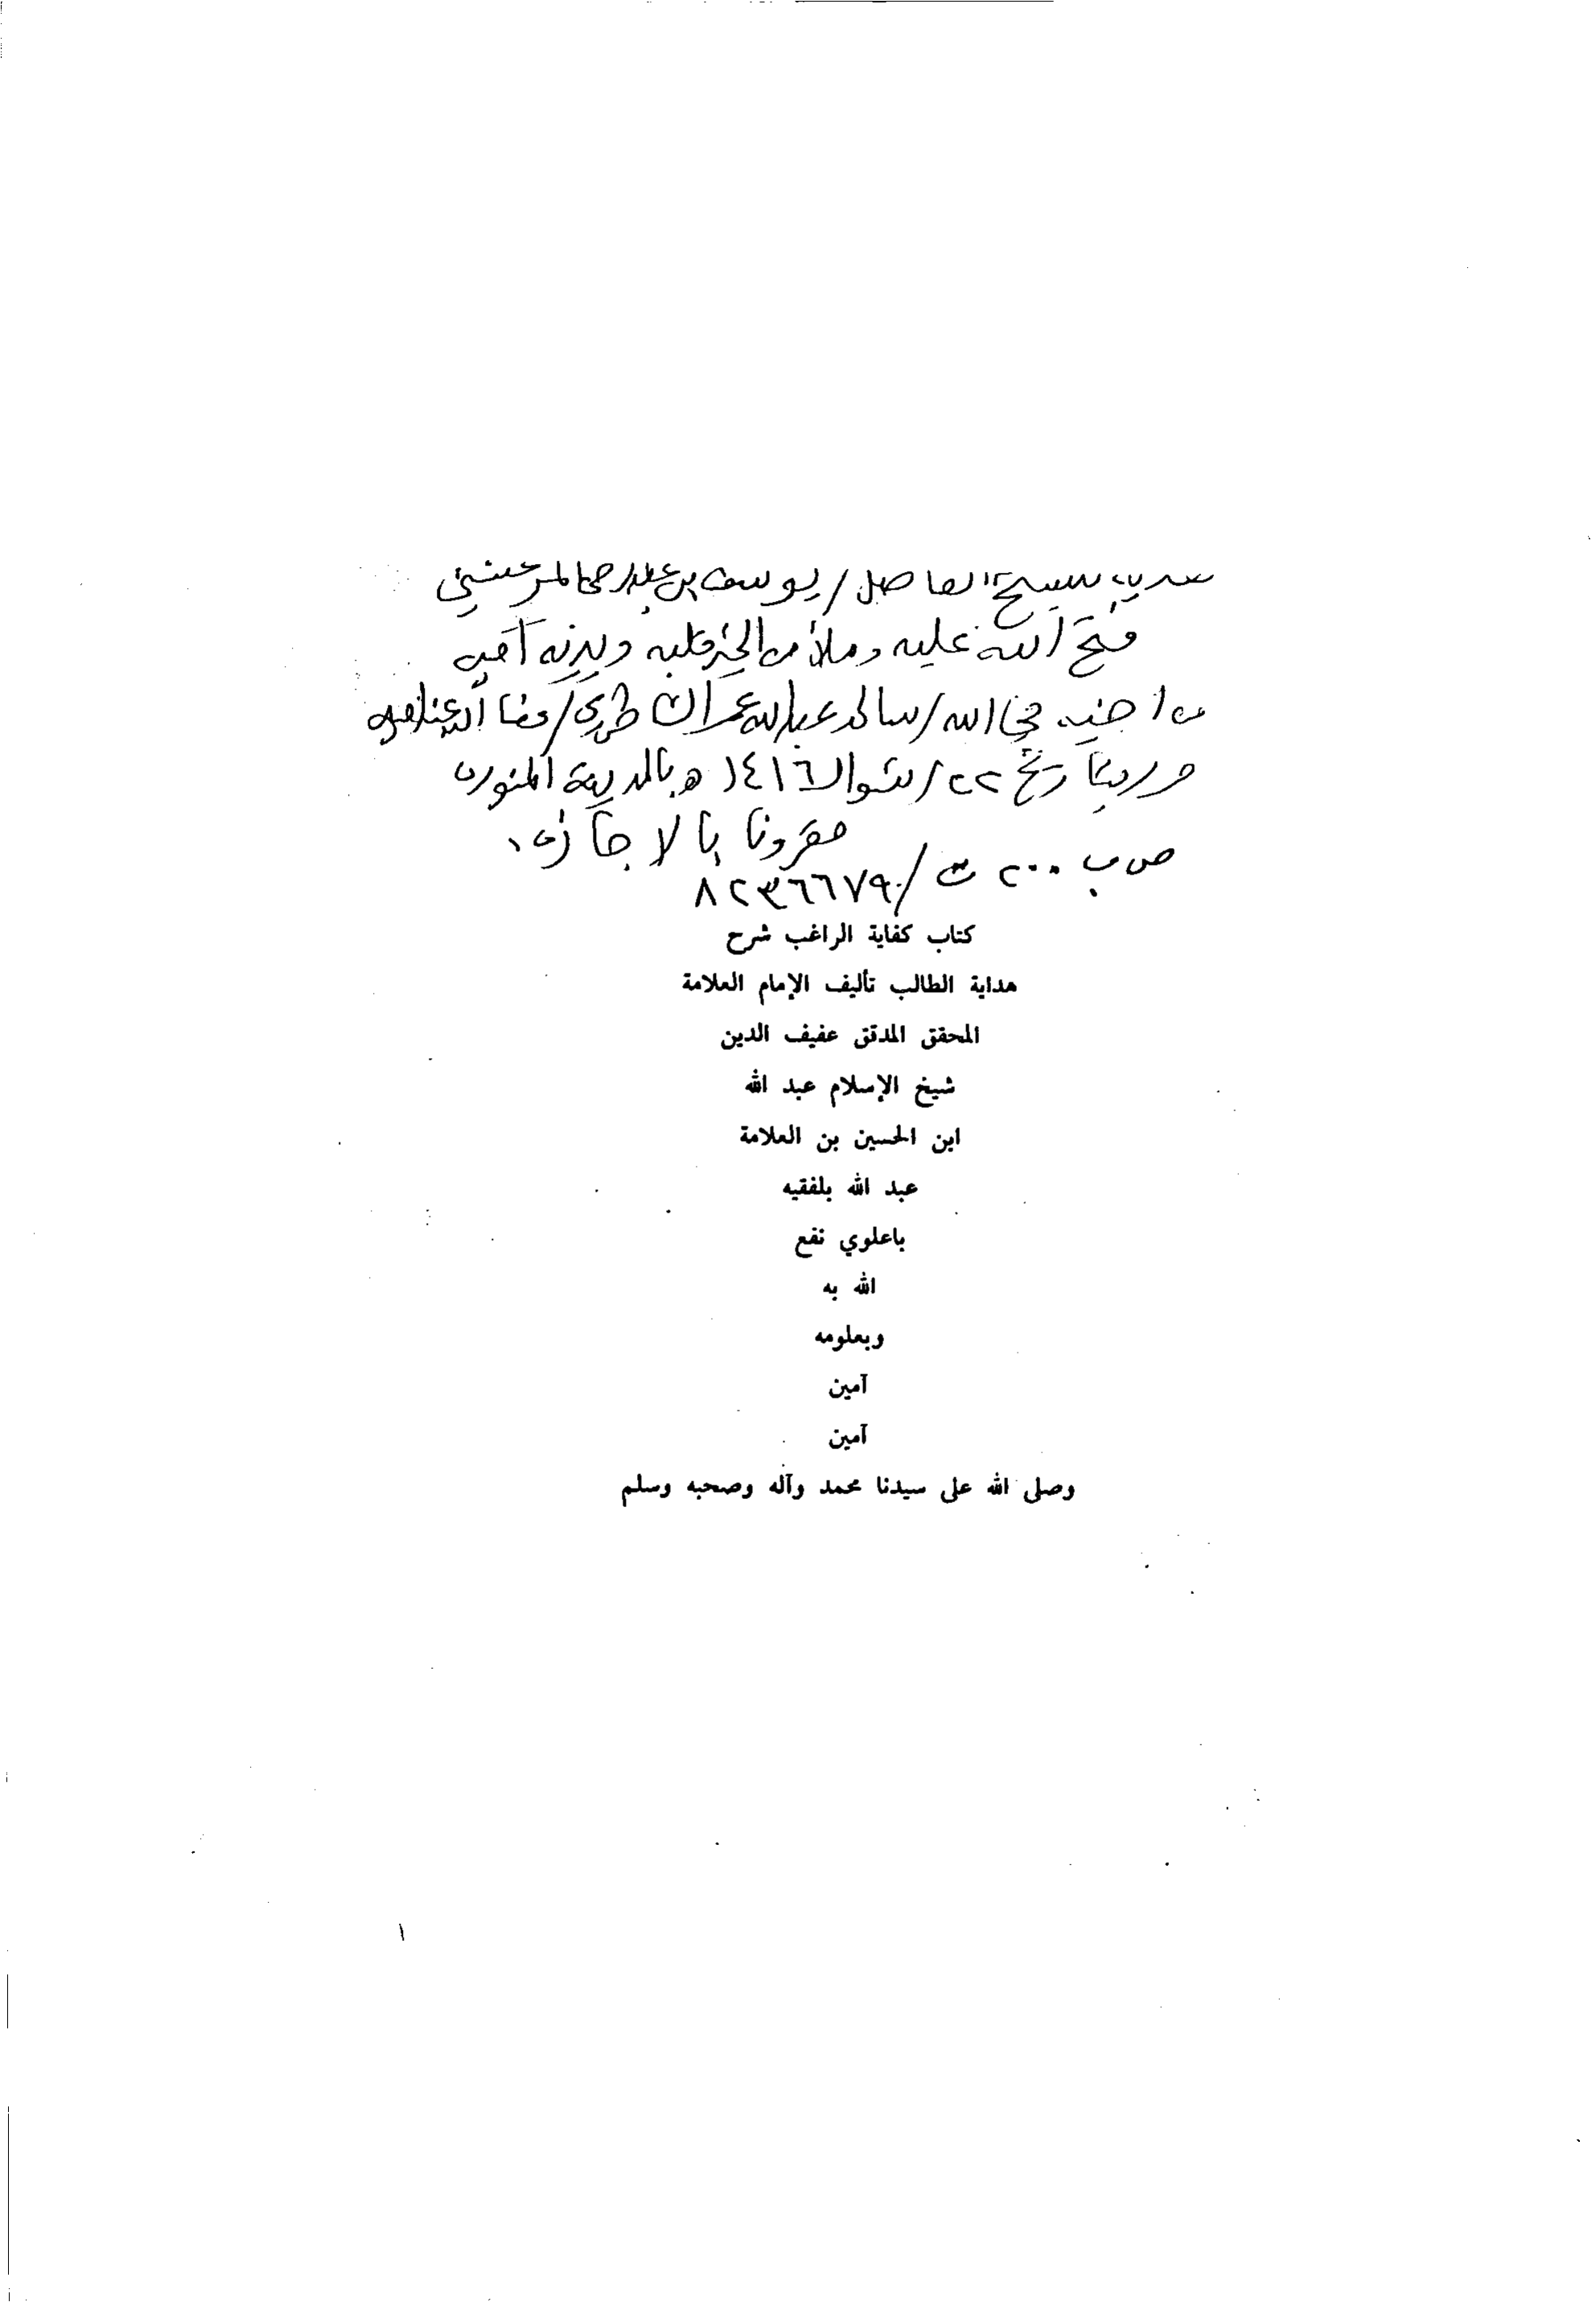 الفاضل / يوسف بن عبد الرحمن المرعشلي
فتح الله عليه وملأ من الخير قلبه ويديه آمين
من أخيه في الله / سالم عبد الله عمر الشاطري / عفا الله عنه آمين
حرر بتاريخ ٢٢ / شوال ١٤١٦ ه بالمدينة المنورة
مقرونا بالاجازة
ص ب ٢٠٠ ت / ٨٢٣٦٦٧٩
كتاب كفاية الراغب شرح
هداية الطالب تأليف الإمام العلامة
المحقق المدقق عفيف الدين
شيخ الإسلام عبد الله
ابن الحسين بن العلامة
عبد الله بلفقيه
باعلوي نفع
الله به
وبعلومه
آمين
آمين
وصلى الله على سيدنا محمد وآله وصحبه وسلم
١